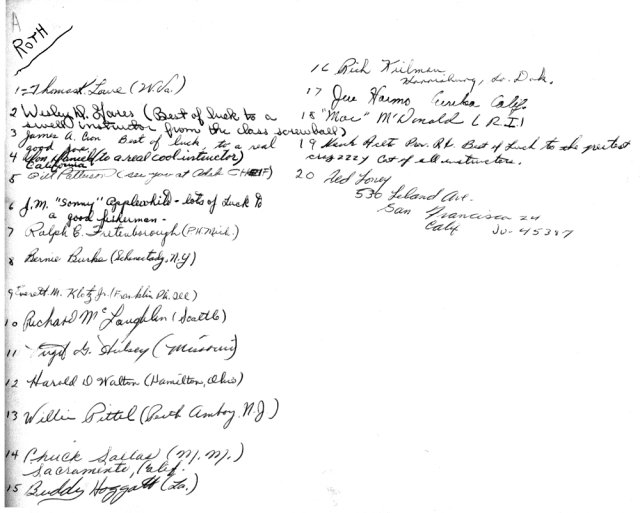 A
ROTH
1 = Thomas K. Lowe (W.Va.)
2 Wesley D. Hares (Best of luck to a
swell instructor from the class screwball)
3 James A. Best of luck to a real
good Joe.
4 Don Daniel (to a real cool instuctor)
California
5 Bill Patterson (see you at Adak CHIEF)
6 J.M. "Sonny" Applewhite - lots of luck to
a good fisherman -
7 Ralph C. Fretenborough (P.H. Mich.)
8 Bernie Burke (Schenectady, N.Y)
9 Everett M. Klotz Jr. (Franklin Pk. Ill)
10 Richard McLaughlin (Seattle)
11 Virgil G. Hulsey (Missouri)
12 Harold D Walton (Hamilton, Ohio)
13 Willie Pittel (Perth Amboy, N.J)
14 Chuck Salas (N.M.)
Sacraminto, Calif.
15 Buddy Hoggatt (La.)
16 Rich
So. Dak.
17 Joe Harmo Eureka Calif.
18 "Mac" McDonald (R.I)
19 Best of Luck to the
Cat of all instructors.
20 Ted
536 Leland Ave.
San Francisco 24
Calif Ju-45387